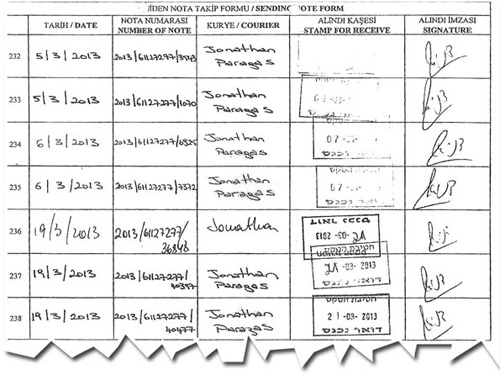 İDEN NOTA TAKİP FORMU / SENDING NOTE FORM
TARİH / DATE
NOTA NUMARASI
NUMBER OF NOTE
KURYE / COURIER
ALINDI KAŞESİ
STAMP FOR RECEIVE
ALINDI İMZASI
SIGNATURE
232 5/3/2013 Jonathan
Paragas
233 5/3/2013 2013/61127277/1070 Jonathan
Paragas
234 6/3/2013 2013/61127277/6825 Jonathan
Paragas 07 -03-
דואר נכנס
235 6/3/2013 2013/61127277/7372 Jonathan
Paragas 07 -03-
דואר נכנס
236 19/3/2013 2013/61127277/
36848 Jonathan דואר נכנס
-03- 2013
237 19/3/2013 2013/61127277/
40397 Jonathan
Paragas -03- 2013
דואר נכנס
238 19/3/2013 2013/61127277/
40477 Jonathan
Paragas 21 -03- 2013
דואר נכנס